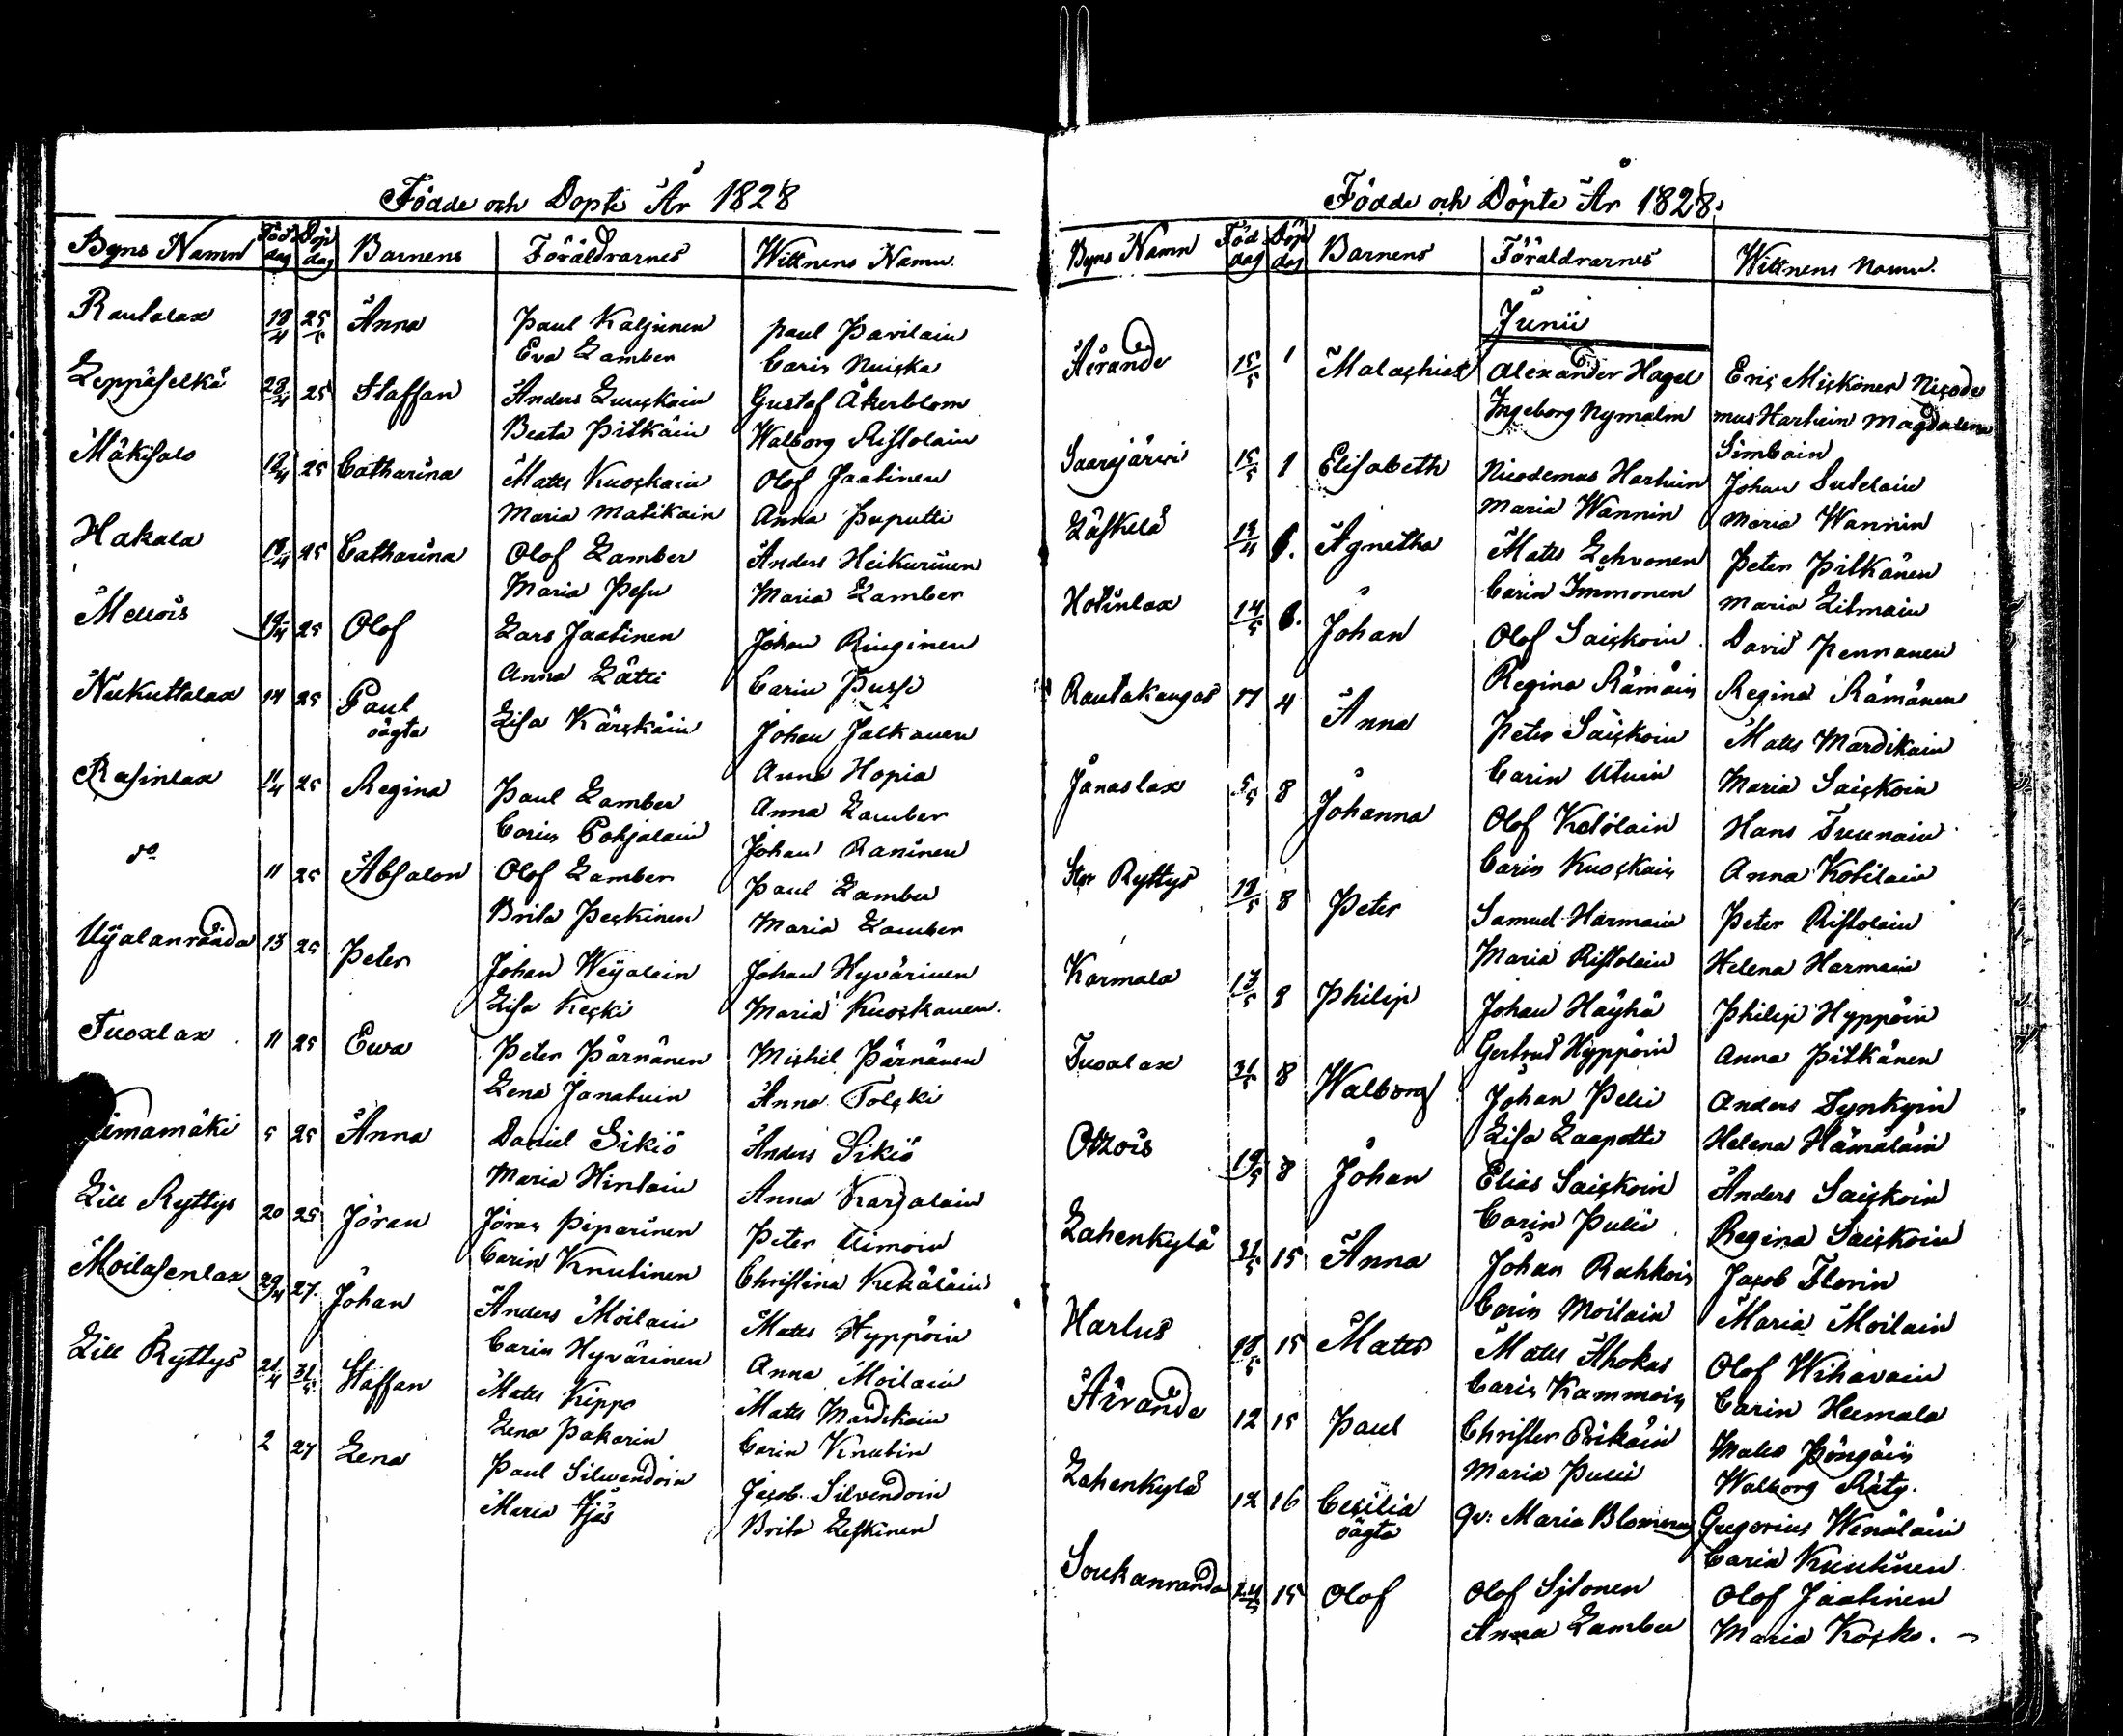 Födde och Döpte År 1828
Byns Namn Föd dag Döp dag Barnens Föräldrarnes Wittnens Namn.
Rautalax 18/4 25/5 Anna Paul Kaljunen Paul Pavilain
Eva Lamber Carin Nuiska
Leppäselkä 28/4 25 Staffan Anders Luuskain Gustaf Åkerblom
Beata Pitkäin Walborg Ristolain
Mäkisalo 12/4 25 Catharina Matts Kuoskain Olof Jaatinen
Maria Matikain Anna Puputti
Hakala 18/4 25 Catharina Olof Lamber Anders Heikurinen
Maria Pesu Maria Lamber
Mellois 19/4 25 Olof Lars Jaatinen Johan Ringinen
Anna Lätti Carin
Nukuttalax 14 25 Paul Lisa Kärskäin Johan Jalkanen
oägta Anna Hopia
Rasinlax 11/4 25 Regina Paul Lamber Anna Lamber
Carin Pohjalain Johan Raninen
do 11 25 Absalon Olof Lamber Paul Lamber
Brita Peskinen Maria Lamber
Uijalanranda 13 25 Peter Johan Weijalain Johan Hyvärinen
Lisa Keski Maria Kuoskanen.
Tuoxlax 11 25 Ewa Peter Pärnänen Michel Pärnänen
Lena Janatuin Anna Tolski
5 25 Anna Daniel Sikiö Anders Sikiö
Maria Hinlain Anna Karjalain
Lill Ryttys 20 25 Jöran Jöran Piparinen Peter Uimoin
Carin Knutinen Christina Kekäläin
Moilasenlax 29/4 27. Johan Anders Moilain Matts Hyppöin
Carin Hyvärinen Anna Moilain
Lill Ryttys 21/4 31/5 Staffan Matts Kippo Matts Mardikain
Lena Pakarin Carin Knutin
2 27 Lena Paul Silvendoin Jacob Silvendoin
Maria Brita Leskinen
Födde och Döpte År 1828.
Byns Namn Föd dag Döp dag Barnens Föräldrarnes Wittnens Namn.
Junii
Äirande 15/5 1 Malachias Alexander Hagel Eric Miskonen Nicode
Ingeborg Nymalm mus Hartuin Magdalena
Simboin
Saarejärvi 15/5 1 Elisabeth Nicodemus Hartuin Johan Sutelain
Maria Wannin Maria Wannin
Läskelä 13/4 6. Agnetha Matts Lehvonen Peter Pitkänen
Carin Immonen Maria Litmain
Hotinlax 14/5 6. Johan Olof Saiskoin David Pennanen
Regina Rämäin Regina Rämänen
Rautakangas 17 4 Anna Peter Saiskoin Matts Mardikain
Carin Utuin Maria Saiskoin
Jänaslax 5/5 8 Johanna Olof Kotilain Hans Tuunain
Carin Kuoskain Anna Kotilain
Stor Ryttys 18/5 8 Peter Samuel Harmain Peter Ristolain
Maria Ristolain Helena Harmain
Karmala 13/5 8 Philip Johan Häyhä Philip Hyppöin
Gertrud Hyppöin Anna Pitkänen
Tuoxlax 31/5 8 Walborg Johan Peld Anders Tynkyin
Lisa Laapotti Helena Hämäläin
Otzois 19/5 8 Johan Elias Saiskoin Anders Saiskoin
Carin Pulli Regina Saiskoin
Lahenkylä 31/5 15 Anna Johan Rahkoin Jacob Florin
Carin Moilain Maria Moilain
Harlus 18/5 15 Matts Matts Ahokas Olof Wihavain
Carin Kammoin Carin Heimala
Äirande 12 15 Paul Christer Erikäin Matts Pöngäin
Maria Pulli Walborg Räty.
Lahenkylä 12 16 Cecilia Qv: Maria Blomerus Gregorius Wenäläin
oägta Carin Knutinen
Soukanranda 24/5 15 Olof Olof Sjlonen Olof Jaatinen
Anna Lamber Maria Kosko.